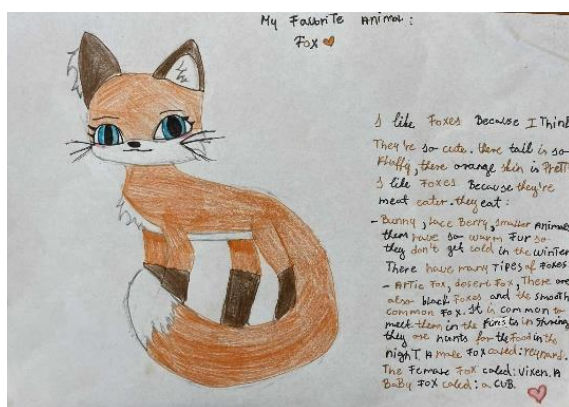 My Favorite Animal:
Fox
I like Foxes Because I Think
They're so cute. there tail is so
Fluffy, there orange skin is Pretty
I like Foxes Because they're
meat eater. they eat:
- Bunny, Berry, smaller Animals
them have so warm Fur so
they don't get cold in the winter
There have many Tipes of Foxes
- Artic Fox, desert Fox, There are
also black Foxes and the smooth
common Fox. It is common to
meet them in the in
they are hunts for the Food in the
nighT. A male Fox called: reynard.
The Female Fox caled: Vixen. A
BaBy Fox caled: a CUB.